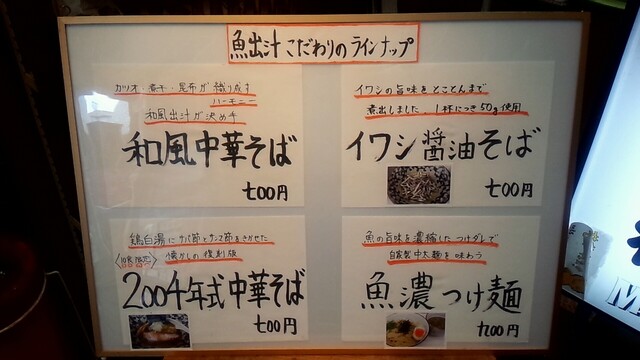 魚出汁こだわりのラインナップ
カツオ・煮干・昆布が織り成す
ハーモニー
和風出汁が決め手
和風中華そば
700円
イワシの旨味をとことんまで
煮出しました、1杯につき50g使用
イワシ醤油そば
700円
鶏白湯にサバ節とサンマ節をきかせた
懐かしの復刻版
2004年式中華そば
700円
魚の旨味を濃縮したつけダレで
自家製中太麺を味わう
魚濃つけ麺